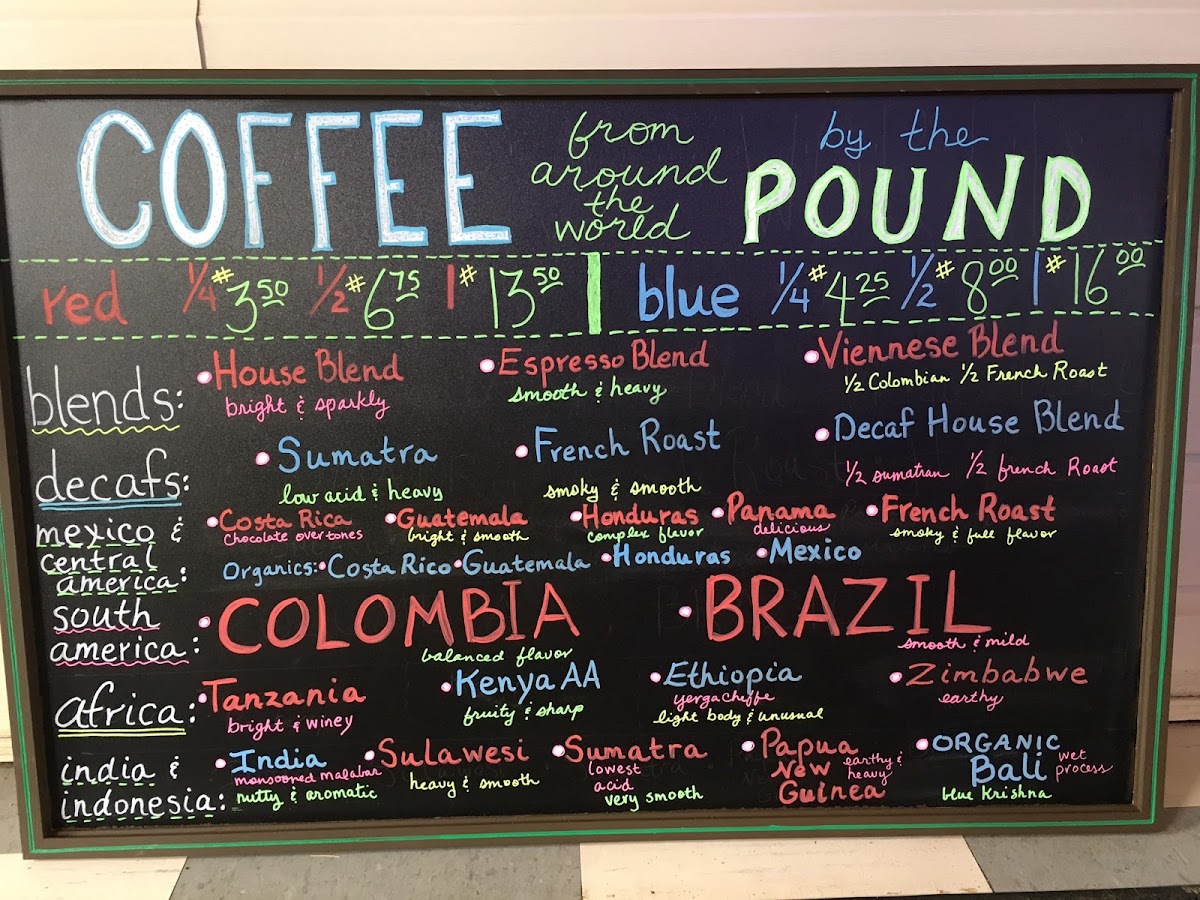 COFFEE from around the world by the POUND
red 1/4 # 3 50 1/2 # 6 75 1 # 13 50 | blue 1/4 # 4 25 1/2 # 8 00 1 # 16 00
blends: • House Blend • Espresso Blend • Viennese Blend
bright & sparkly smooth & heavy 1/2 Colombian 1/2 French Roast
decafs: • Sumatra • French Roast • Decaf House Blend
low acid & heavy smoky & smooth 1/2 sumatran 1/2 french Roast
mexico & central america: • Costa Rica • Guatemala • Honduras • Panama • French Roast
Chocolate overtones bright & smooth complex flavor delicious smoky & full flavor
Organics: • Costa Rico • Guatemala • Honduras • Mexico
south america: • COLOMBIA • BRAZIL
balanced flavor smooth & mild
africa: • Tanzania • Kenya AA • Ethiopia • Zimbabwe
bright & winey fruity & sharp yergacheffe earthy
light body & unusual
india & indonesia: • India • Sulawesi • Sumatra • Papua New Guinea • ORGANIC Bali
monsooned malabar heavy & smooth lowest acid earthy & heavy wet process
nutty & aromatic very smooth blue Krishna